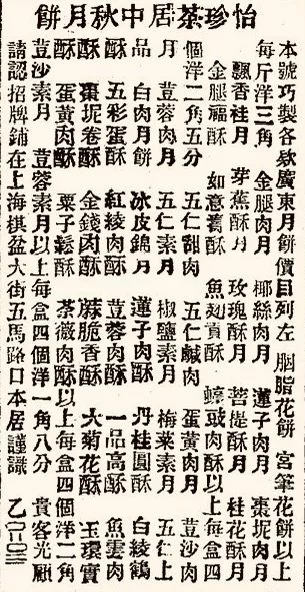 怡珍茶居中秋月餅
本號巧製各欵廣東月餅價目列左 胭脂花餅 宮筆花餅以上
每斤洋三角 金腿肉月 椰絲肉月 蓮子肉月 棗坭肉月
飄香桂月 芽蕉酥月 玫瑰酥月 菩提酥月 桂花酥月
金腿福酥 如意舊酥 魚翅貢酥 蠔豉肉酥以上每盒四
個洋二角五分 五仁甜肉 五仁鹹肉 蛋黃肉月 荳沙肉
月 荳蓉肉月 五仁素月 椒鹽素月 梅菜素月 五仁上
品 白肉月餅 冰皮錦月 蓮子肉酥 丹桂圓酥 白綾鶴
酥 五彩蛋酥 紅綾肉酥 荳蓉肉酥 一品高酥 魚雲肉
酥 棗坭卷酥 金錢肉酥 蔴脆香酥 大菊花酥 玉環實
酥 蛋黃肉酥 粟子鬆酥 茶薇肉酥以上每盒四個洋二角
荳沙素月 荳蓉素月以上每盒四個洋一角八分 貴客光顧
請認招牌鋪在上海棋盆大街五馬路口本居謹識 乙